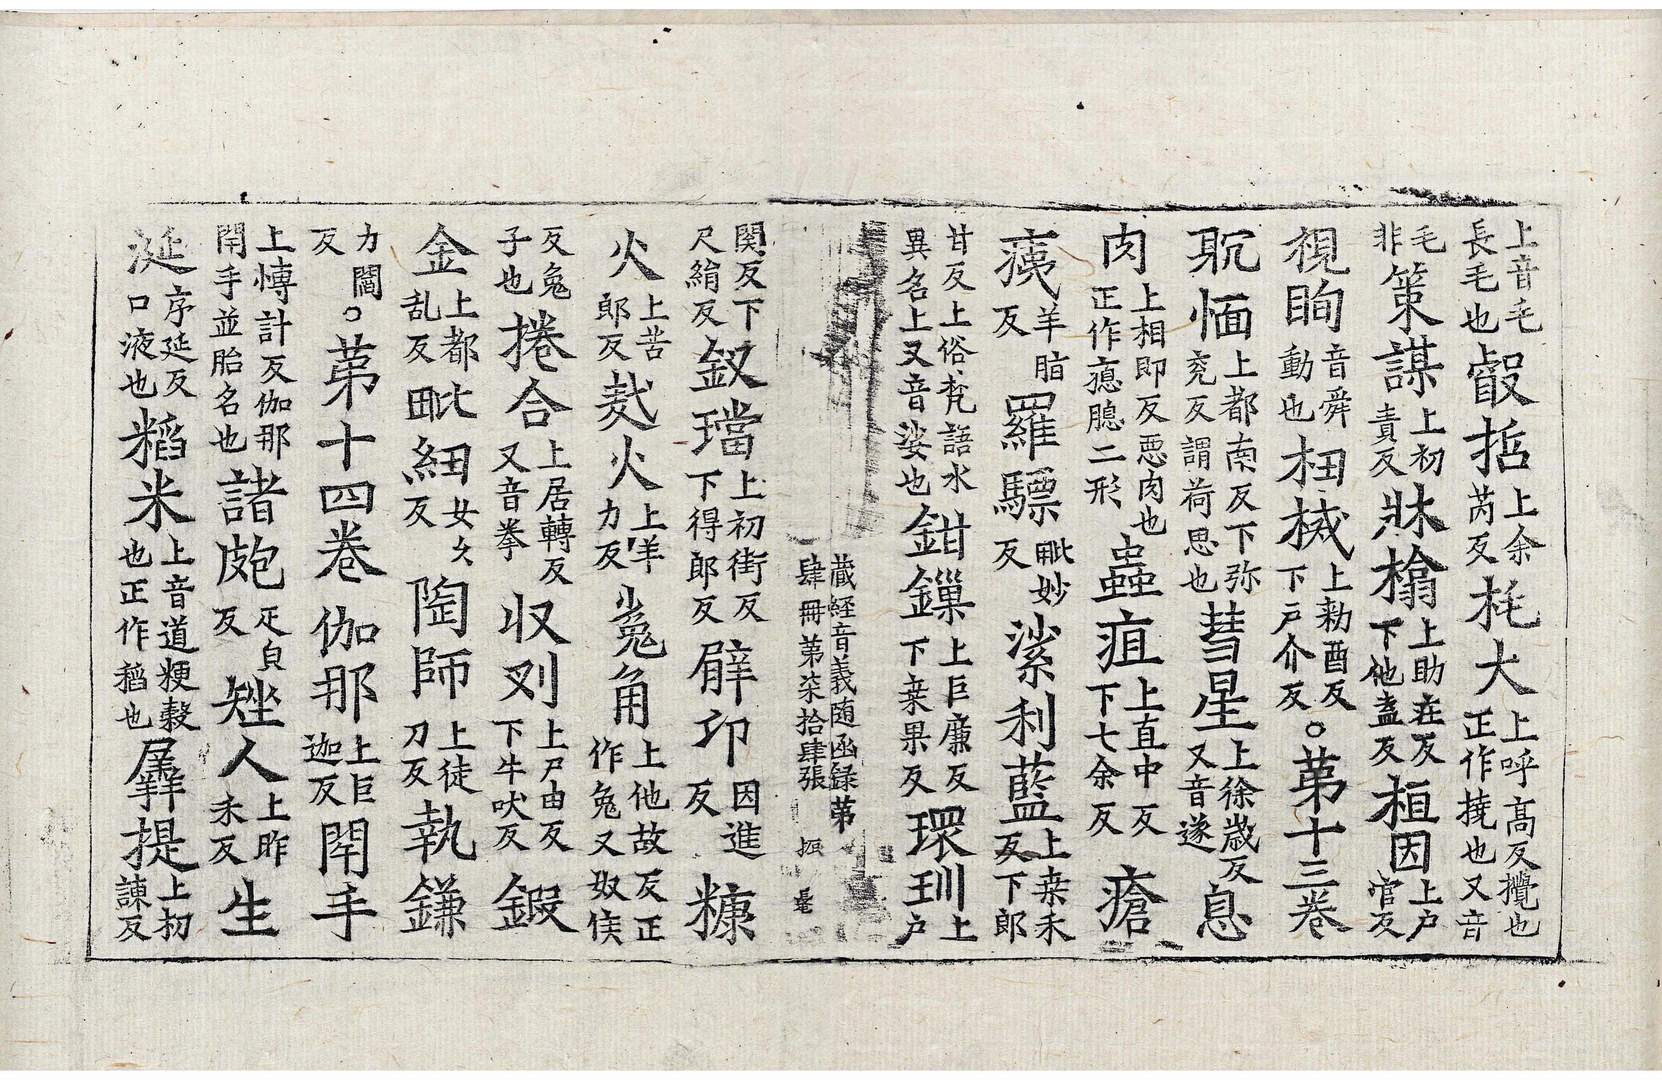 上音毛長毛也叡哲上余芮反㧌大上呼高反攪也正作撓也又音
毛非策謀上初責反牀榻上助庄反下他盍反桓因上户官反
視眴音舜動也杻械上勑酉反下户介反。第十三卷
躭愐上都南反下弥兖反謂荷思也彗星上徐歲反又音遂息
肉上相即反惡肉也正作瘜膃二形蟲疽上直中反下七余反瘡
痍羊脂反羅驃毗妙反㴖利藍上桒禾反下郎
甘反上俗梵語水異名上又音娑也鉗鏁上巨廉反下桒果反環玔上户
藏經音義随函録第肆冊第柒拾肆張 振 毫
関反下尺絹反釵璫上初街反下得郎反辟印因進反糠
火上苦郎反𤆬火上羊力反兔角上他故反正作兔又奴侯
反兔子也捲合上居轉反又音拳収刈上尸由反下牛吠反鍜
金上都乱反毗紐女久反陶師上徒刀反執鎌
力閻反。第十四卷伽那上巨迦反閇手
上博計反伽那閇手並胎名也諸皰疋皃反矬人上昨禾反生
涎序延反口液也糟米上音道粳糓也正作稻也羼提上初諫反